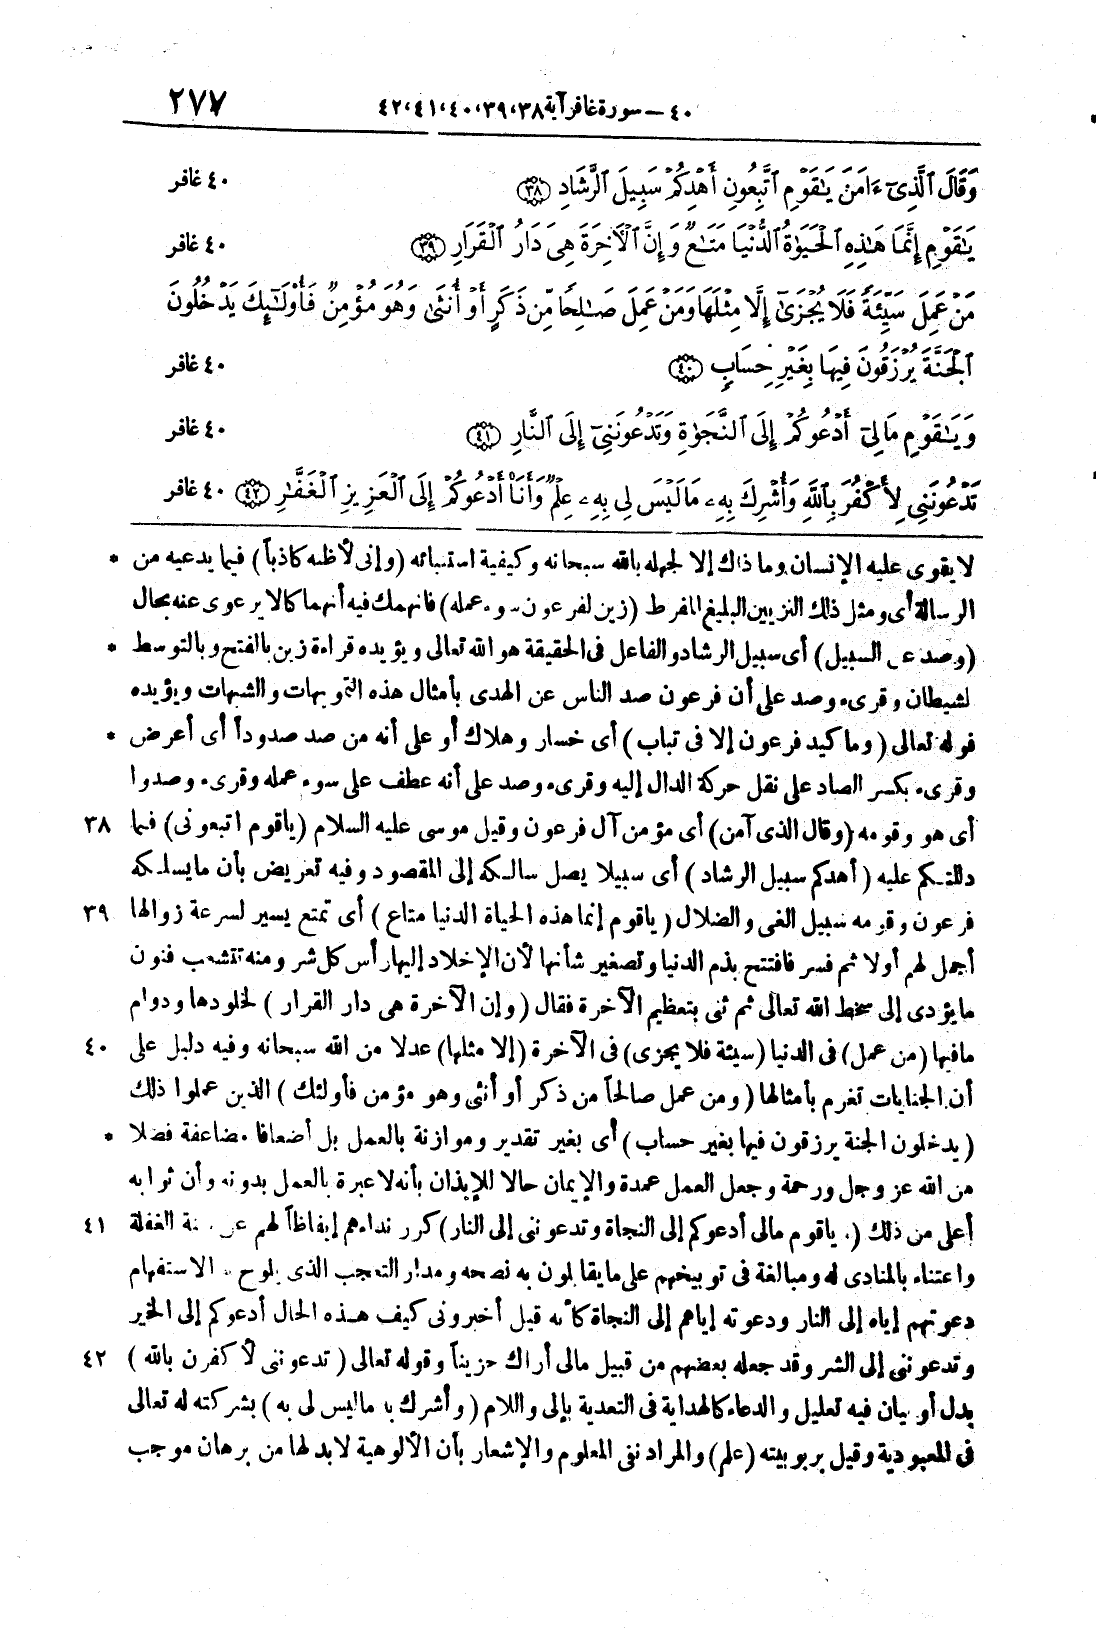 ٤٠ – سورة غافر آية ٣٨،٣٩،٤٠،٤١،٤٢ ٢٧٧
وَقَالَ ٱلَّذِىٓ ءَامَنَ يَٰقَوْمِ ٱتَّبِعُونِ أَهْدِكُمْ سَبِيلَ ٱلرَّشَادِ ﴿٣٨﴾ ٤٠ غافر
يَٰقَوْمِ إِنَّمَا هَٰذِهِ ٱلْحَيَوٰةُ ٱلدُّنْيَا مَتَٰعٌ وَإِنَّ ٱلْأَخِرَةَ هِىَ دَارُ ٱلْقَرَارِ ﴿٣٩﴾ ٤٠ غافر
مَنْ عَمِلَ سَيِّئَةً فَلَا يُجْزَىٰٓ إِلَّا مِثْلَهَا وَمَنْ عَمِلَ صَٰلِحًا مِّن ذَكَرٍ أَوْ أُنثَىٰ وَهُوَ مُؤْمِنٌ فَأُوْلَٰٓئِكَ يَدْخُلُونَ
ٱلْجَنَّةَ يُرْزَقُونَ فِيهَا بِغَيْرِ حِسَابٍ ﴿٤٠﴾ ٤٠ غافر
وَيَٰقَوْمِ مَالِىٓ أَدْعُوكُمْ إِلَى ٱلنَّجَوٰةِ وَتَدْعُونَنِىٓ إِلَى ٱلنَّارِ ﴿٤١﴾ ٤٠ غافر
تَدْعُونَنِى لِأَكْفُرَ بِٱللَّهِ وَأُشْرِكَ بِهِۦ مَا لَيْسَ لِى بِهِۦ عِلْمٌ وَأَنَا۠ أَدْعُوكُمْ إِلَى ٱلْعَزِيزِ ٱلْغَفَّٰرِ ﴿٤٢﴾ ٤٠ غافر
لا يقوى عليه الإنسان وما ذاك إلا لجهله بالله سبحانه وكيفية استنبائه (وإنى لأظنه كاذباً) فيما يدعيه من *
الرسالة أى ومثل ذلك التزيين البليغ المفرط (زين لفرعون سوء عمله) فانهمك فيه انهماكا لا يرعوى عنه بحال
(وصد عن السبيل) أى سبيل الرشاد والفاعل فى الحقيقة هو الله تعالى ويؤيده قراءة زين بالفتح وبالتوسط *
لشيطان وقرىء وصد على أن فرعون صد الناس عن الهدى بأمثال هذه التمويهات والشبهات ويؤيده
قوله تعالى (وما كيد فرعون إلا فى تباب) أى خسار وهلاك أو على أنه من صد صدوداً أى أعرض *
وقرىء بكسر الصاد على نقل حركة الدال إليه وقرىء وصد على أنه عطف على سوء عمله وقرىء وصدوا
أى هو وقومه (وقال الذى آمن) أى مؤمن آل فرعون وقيل موسى عليه السلام (ياقوم اتبعونى) فيما ٣٨
دللتكم عليه (أهدكم سبيل الرشاد) أى سبيلا يصل سالكه إلى المقصود وفيه تعريض بأن ما يسلكه
فرعون وقومه سبيل الغى والضلال (ياقوم إنما هذه الحياة الدنيا متاع) أى تمتع يسير لسرعة زوالها ٣٩
أجمل لهم أولا ثم فسر فافتتح بذم الدنيا وتصغير شأنها لأن الإخلاد إليها رأس كل شر ومنه تتشعب فنون
ما يؤدى إلى سخط الله تعالى ثم ثنى بتعظيم الآخرة فقال (وإن الآخرة هى دار القرار) لخلودها ودوام
مافيها (من عمل) فى الدنيا (سيئة فلا يجزى) فى الآخرة (إلا مثلها) عدلا من الله سبحانه وفيه دليل على ٤٠
أن الجنايات تغرم بأمثالها (ومن عمل صالحاً من ذكر أو أنثى وهو مؤمن فأولئك) الذين عملوا ذلك
(يدخلون الجنة يرزقون فيها بغير حساب) أى بغير تقدير وموازنة بالعمل بل أضعافا مضاعفة فضلا *
من الله عز وجل ورحمة وجعل العمل عمدة والإيمان حالا للإيذان بأنه لا عبرة بالعمل بدونه وأن ثوابه
أعلى من ذلك (ياقوم مالى أدعوكم إلى النجاة وتدعوننى إلى النار) كرر نداءهم إيقاظاً لهم عن سنة الغفلة ٤١
واعتناء بالمنادى له ومبالغة فى توبيخهم على ما يقابلون به نصحه ومدار التعجب الذى يلوح به الاستفهام
دعوتهم إياه إلى النار ودعوته إياهم إلى النجاة كأنه قيل أخبرونى كيف هذه الحال أدعوكم إلى الخير
وتدعوننى إلى الشر وقد جعله بعضهم من قبيل مالى أراك حزيناً وقوله تعالى (تدعوننى لأكفر بالله) ٤٢
بدل أو بيان فيه تعليل والدعاء كالهداية فى التعدية بإلى واللام (وأشرك به ما ليس لى به) بشركته له تعالى
فى المعبودية وقيل بربوبيته (علم) والمراد نفى المعلوم والإشعار بأن الألوهية لابد لها من برهان موجب